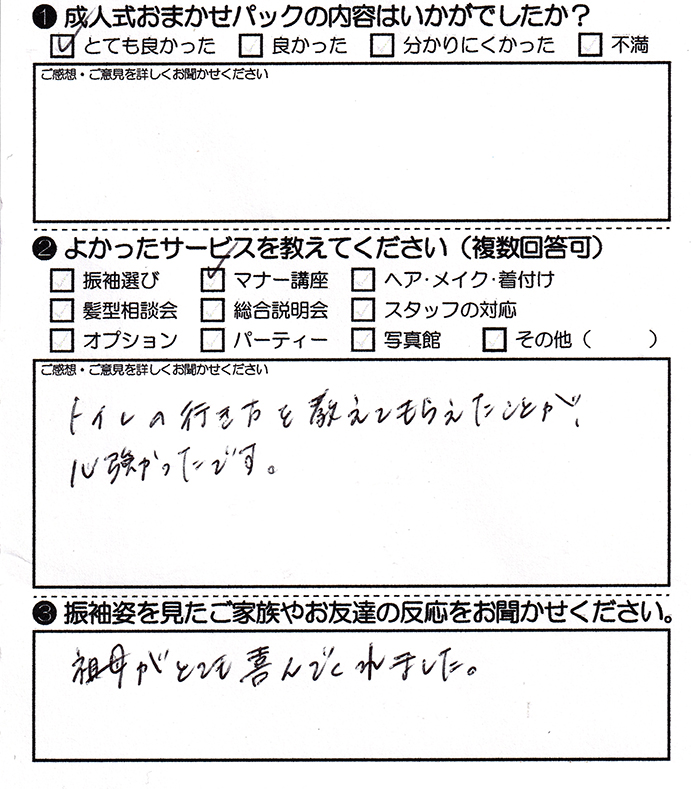 ❶成人式おまかせパックの内容はいかがでしたか？
☑とても良かった □良かった □分かりにくかった □不満
ご感想・ご意見を詳しくお聞かせください
❷よかったサービスを教えてください（複数回答可）
□振袖選び ☑マナー講座 □ヘア・メイク・着付け
□髪型相談会 □総合説明会 □スタッフの対応
□オプション □パーティー □写真館 □その他（　　）
ご感想・ご意見を詳しくお聞かせください
トイレの行き方を教えてもらえたことが、
心強かったです。
❸振袖姿を見たご家族やお友達の反応をお聞かせください。
祖母がとても喜んでくれました。